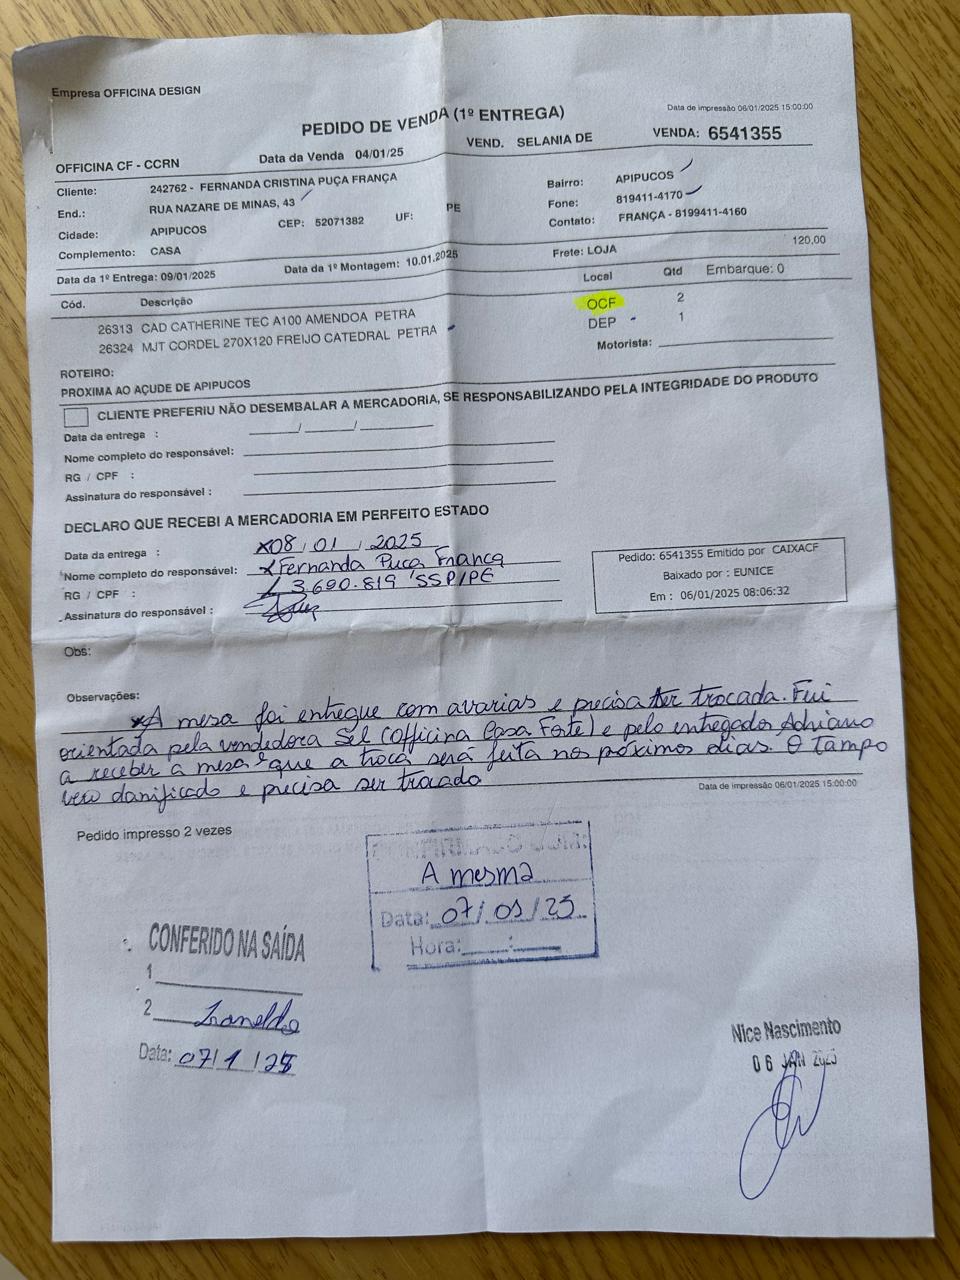 Empresa OFFICINA DESIGN
Data de impressão 06/01/2025 15:00:00
PEDIDO DE VENDA (1º ENTREGA)
OFFICINA CF - CCRN Data da Venda 04/01/25 VEND. SELANIA DE VENDA: 6541355
Cliente: 242762 - FERNANDA CRISTINA PUÇA FRANÇA Bairro: APIPUCOS
End.: RUA NAZARE DE MINAS, 43 Fone: 819411-4170
Cidade: APIPUCOS CEP: 52071382 UF: PE Contato: FRANÇA - 8199411-4160
Complemento: CASA
Data da 1º Entrega: 09/01/2025 Data da 1º Montagem: 10.01.2025 Frete: LOJA 120,00
Cód. Descrição Local Qtd Embarque: 0
26313 CAD CATHERINE TEC A100 AMENDOA PETRA OCF 2
26324 MJT CORDEL 270X120 FREIJO CATEDRAL PETRA DEP 1
Motorista:
ROTEIRO:
PROXIMA AO AÇUDE DE APIPUCOS
CLIENTE PREFERIU NÃO DESEMBALAR A MERCADORIA, SE RESPONSABILIZANDO PELA INTEGRIDADE DO PRODUTO
Data da entrega : / /
Nome completo do responsável:
RG / CPF :
Assinatura do responsável :
DECLARO QUE RECEBI A MERCADORIA EM PERFEITO ESTADO
Data da entrega : x08/01/2025
Nome completo do responsável: x Fernanda Puça França
RG / CPF : 3.690.819 SSP/PE
Assinatura do responsável :
Pedido: 6541355 Emitido por CAIXACF
Baixado por : EUNICE
Em : 06/01/2025 08:06:32
Obs:
Observações:
*A mesa foi entregue com avarias e precisa ser trocada. Fui
orientada pela vendedora Sel (Officina Casa Forte) e pelo entregador Adriano
a receber a mesa e que a troca será feita nos próximos dias. O tampo
veio danificado e precisa ser trocado
Data de impressão 06/01/2025 15:00:00
Pedido impresso 2 vezes
CONFIRMADO COM:
A mesma
Data: 07/01/25
Hora: :
CONFERIDO NA SAÍDA
1
2 Ivaneldo
Data: 07/1/25
Nice Nascimento
06 JAN 2025